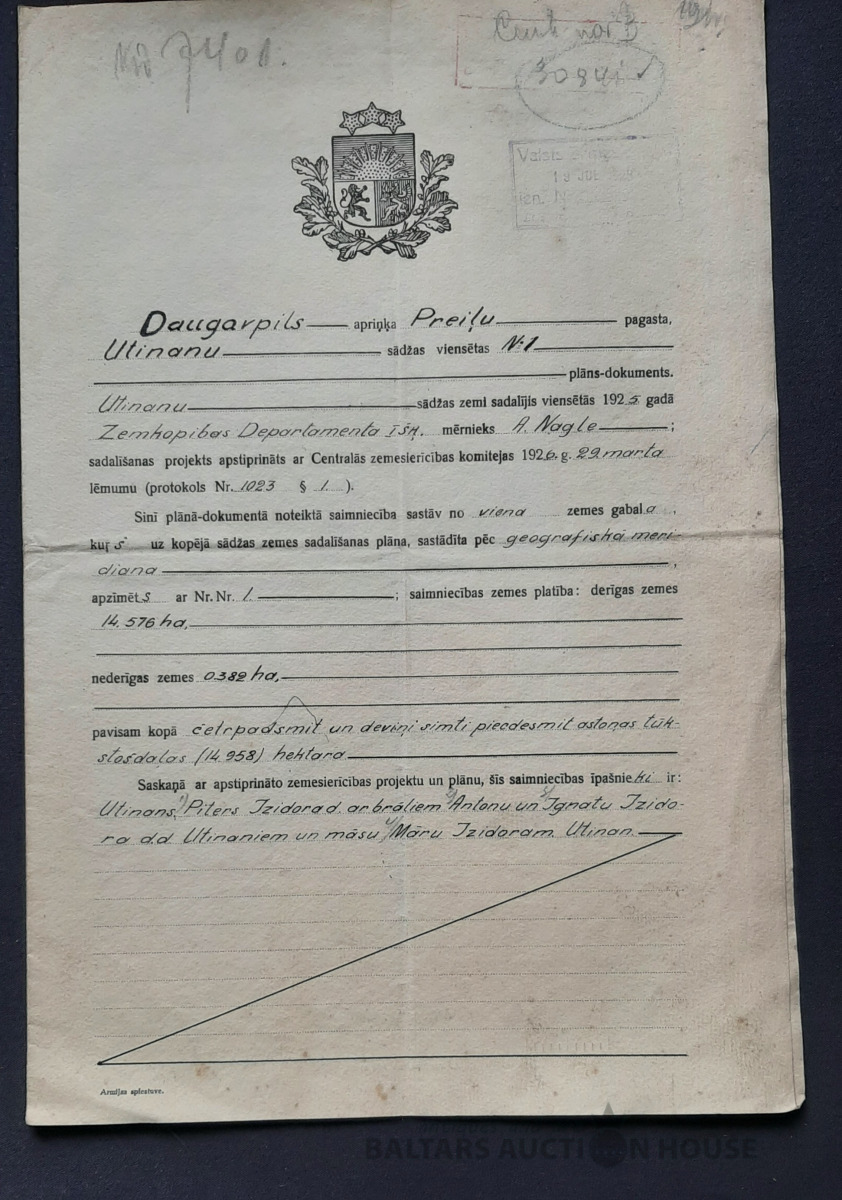 № 7401.
30841 ✓
Valsts
19 JUL
Daugavpils apriņķa Preiļu pagasta,
Utinanu sādžas viensētas №1
plāns-dokuments.
Utinanu sādžas zemi sadalījis viensētās 1925 gadā
Zemkopības Departamenta mērnieks A. Nagle ;
sadalīšanas projekts apstiprināts ar Centrālās zemesierīcības komitejas 1926. g. 29. marta
lēmumu (protokols Nr. 1023 § 1. ).
Sinī plānā-dokumentā noteiktā saimniecība sastāv no viena zemes gabala ,
kurš uz kopējā sādžas zemes sadalīšanas plāna, sastādīta pēc geografiskā meri-
diana ,
apzīmēts ar Nr. Nr. 1. ; saimniecības zemes platība: derīgas zemes
14.576 ha,
nederīgas zemes 0.382 ha,
pavisam kopā četrpadsmit un deviņi simti piecdesmit astoņas tūk-
stošdaļas (14.958) hektara
Saskaņā ar apstiprināto zemesierīcības projektu un plānu, šīs saimniecības īpašnieki ir:
Utinans, Piters Izidora d. ar brāļiem Antonu un Ignatu Izido-
ra d.d. Utinaniem un māsu Māru Izidora m. Utinan.
Armijas spiestuve.
BALTARS AUCTION HOUSE